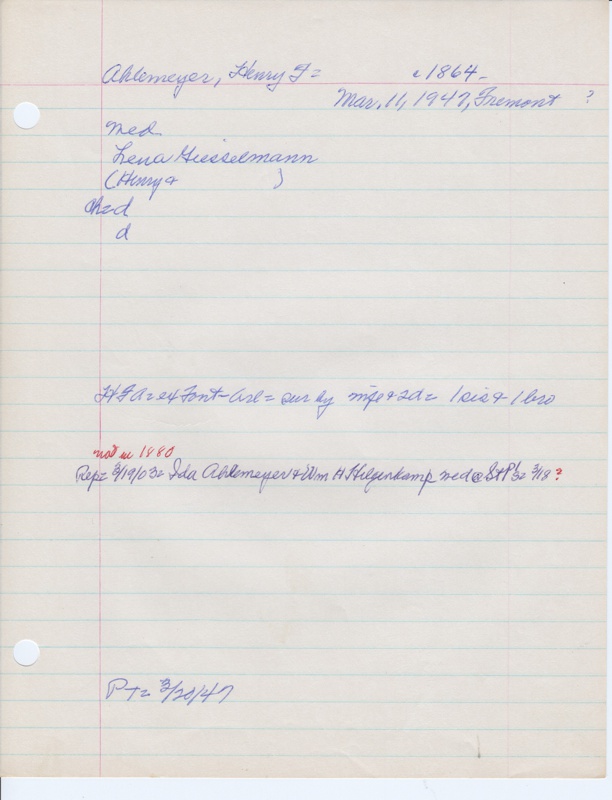 Ahlemeyer, Henry F= c1864-
Mar. 11, 1947, Fremont ?
wed
Lena Giesselmann
(Henry & )
ch=d
d
HFA= ex Font-Arl= sur by wife & 2d= 1 sis & 1 bro
not in 1880
Rep= 3/19/03= Ida Ahlemeyer & Wm H Hilgenkamp wed @ St P's= 3/18 ?
PT= 3/20/47